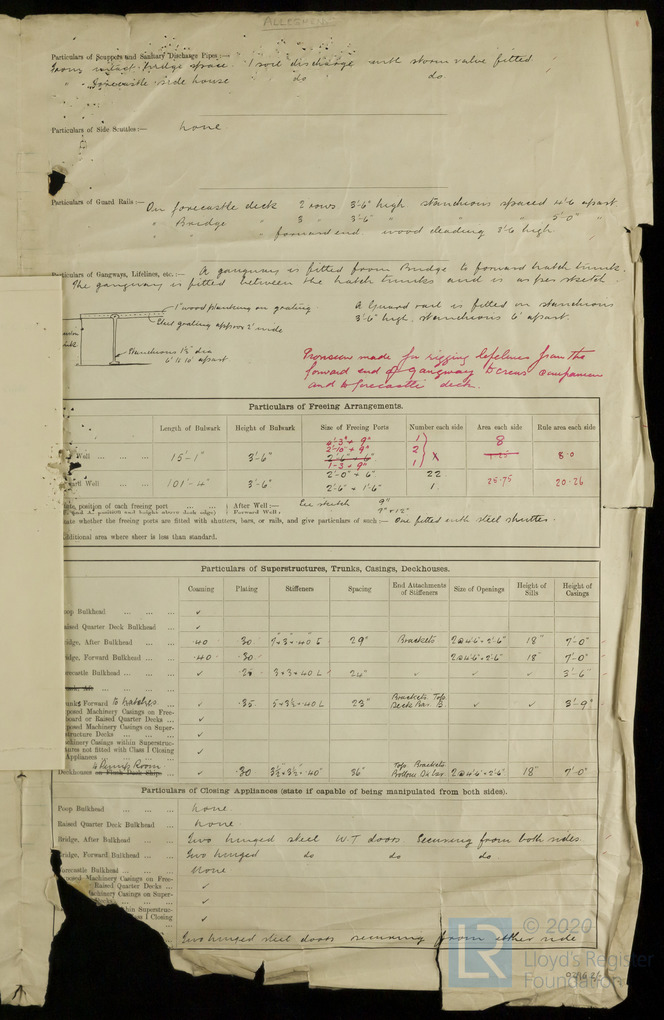 ALLEGHENY
Particulars of Scuppers and Sanitary Discharge Pipes:—
bridge space. 1 soil discharge with storm valve fitted
" forecastle side house do do
Particulars of Side Scuttles:— None
Particulars of Guard Rails:— On forecastle deck 2 rows 3'-6" high. stanchions spaced 4'-6 apart.
" Bridge " 3 " 3'-6" " " " 5'-0" "
" " " forward end wood cleading 3'-6 high
Particulars of Gangways, Lifelines, etc.:— A gangway is fitted from Bridge to forward hatch trunk.
The gangway is fitted between the hatch trunks and is as per sketch.
1" wood planking on grating
Steel grating approx 2' wide
Stanchions 1½" dia
6' to 10' apart
A Guard rail is fitted on stanchions
3'-6" high, stanchions 6' apart.
Provision made for rigging lifelines from the
forward end of gangway to crews companion
and to forecastle deck.
Particulars of Freeing Arrangements.
Length of Bulwark Height of Bulwark Size of Freeing Ports Number each side Area each side Rule area each side
Well 15'-1" 3'-6" 2'-10" + 9" 2 8 8·0
1-3 + 9" 1
Well 101'-4" 3'-6" 2'-0" + 6" 22 25·75 20·26
2'-6" + 1'-6" 1
position of each freeing port After Well:— See sketch 9"
Forward Well: 9" + 12"
state whether the freing ports are fitted with shutters, bars, or rails, and give particulars of such:— One fitted with steel shutter.
Additional area where sheer is less than standard.
Particulars of Superstructures, Trunks, Casings, Deckhouses.
Coaming Plating Stiffeners Spacing End Attachments of Stiffeners Size of Openings Height of Sills Height of Casings
Poop Bulkhead ✓
Raised Quarter Deck Bulkhead ✓
Bridge, After Bulkhead ·40 ·30 ·40 29" Brackets 2@4'6"×2'-6" 18" 7'-0"
Bridge, Forward Bulkhead ·40 ·30 2@4'6"×2'-6" 18" 7'-0"
Forecastle Bulkhead ✓ 3×3×·40 L 24" ✓ ✓ ✓ 3'-6"
Trunks Forward to hatches ✓ ·35 5×3½×·40 L 23" Brackets Top ✓ ✓ 3'-9"
Exposed Machinery Casings on Free-
board or Raised Quarter Decks ✓
Exposed Machinery Casings on Super-
structure Decks ✓
Machinery Casings within Superstruc-
tures not fitted with Class I Closing
Appliances ✓
& Pump Room
Deckhouses on Flush Deck Ships ✓ ·30 3½×3½×·40" 36" Top Brackets 2@4'6"×2'-6" 18" 7'-0"
Particulars of Closing Appliances (state if capable of being manipulated from both sides).
Poop Bulkhead None
Raised Quarter Deck Bulkhead None
Bridge, After Bulkhead Two hinged steel W.T doors Securing from both sides
Bridge, Forward Bulkhead Two hinged do do do
Forecastle Bulkhead None
Exposed Machinery Casings on Free-
Raised Quarter Decks ✓
Machinery Casings on Super-
Decks ✓
within Superstruc-
Class I Closing ✓
Two hinged steel doors securing from either side
© 2020
Lloyd's Register
Foundation
LR